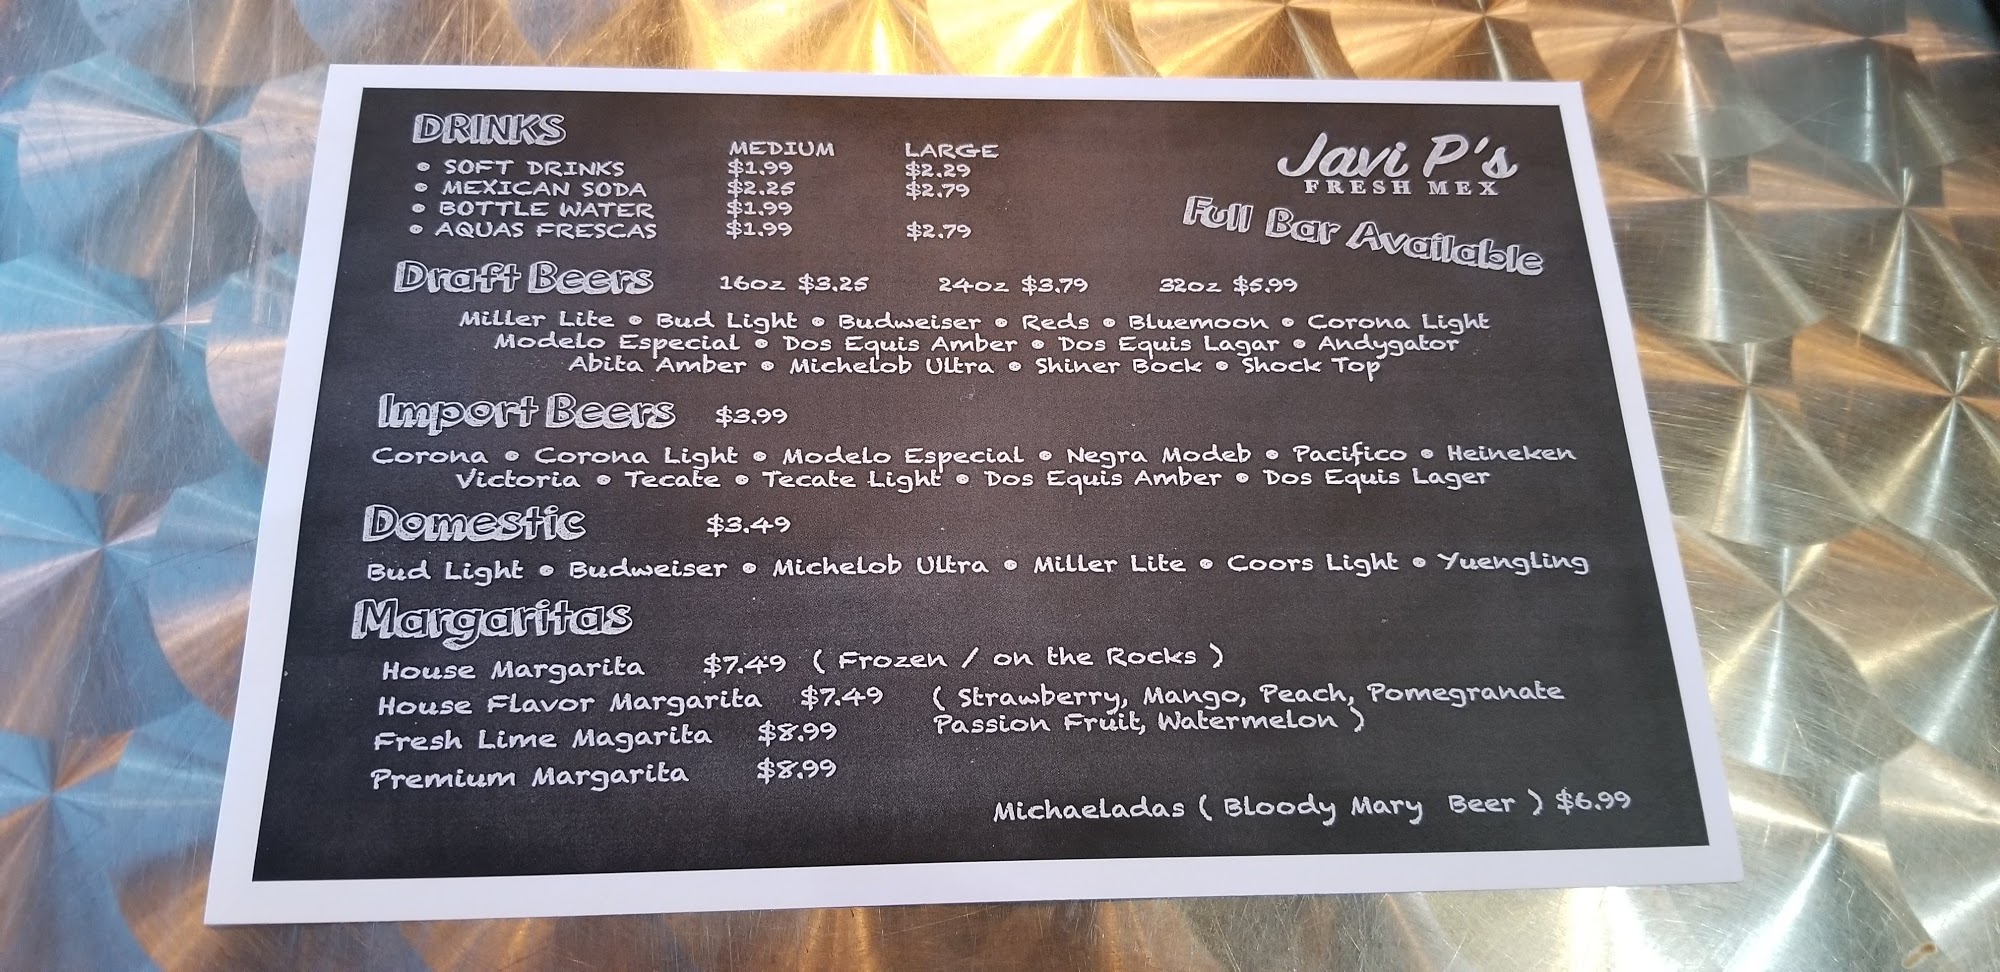 DRINKS
MEDIUM LARGE
• SOFT DRINKS $1.99 $2.29
• MEXICAN SODA $2.25 $2.79
• BOTTLE WATER $1.99
• AQUAS FRESCAS $1.99 $2.79
Javi P's
FRESH MEX
Full Bar Available
Draft Beers 16oz $3.25 24oz $3.79 32oz $5.99
Miller Lite • Bud Light • Budweiser • Reds • Bluemoon • Corona Light
Modelo Especial • Dos Equis Amber • Dos Equis Lagar • Andygator
Abita Amber • Michelob Ultra • Shiner Bock • Shock Top
Import Beers $3.99
Corona • Corona Light • Modelo Especial • Negra Modeb • Pacifico • Heineken
Victoria • Tecate • Tecate Light • Dos Equis Amber • Dos Equis Lager
Domestic $3.49
Bud Light • Budweiser • Michelob Ultra • Miller Lite • Coors Light • Yuengling
Margaritas
House Margarita $7.49 ( Frozen / on the Rocks )
House Flavor Margarita $7.49 ( Strawberry, Mango, Peach, Pomegranate
Passion Fruit, Watermelon )
Fresh Lime Magarita $8.99
Premium Margarita $8.99
Michaeladas ( Bloody Mary Beer ) $6.99